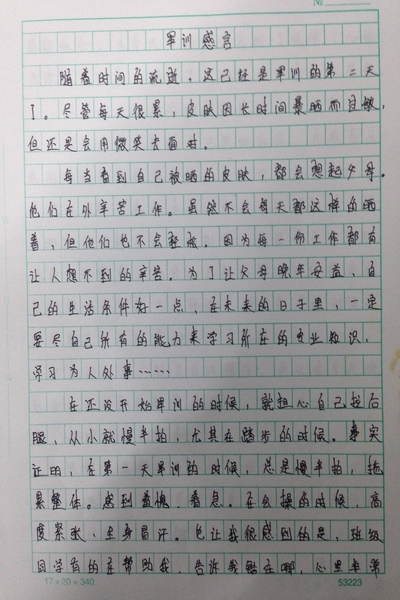 №
军训感言
随着时间的流逝，这已经是军训的第二天
了。尽管每天很累，皮肤因长时间暴晒而过敏，
但还是会用微笑去面对。
每当看到自己被晒的皮肤，都会想起父母。
他们在外辛苦工作。虽然不会每天都这样的晒
着，但他们也不会轻松。因为每一份工作都有
让人想不到的辛苦。为了让父母晚年安益，自
己的生活条件好一点，在未来的日子里，一定
要尽自己所有的能力来学习所在的专业知识，
学习为人处事……
在还没开始军训的时候，就担心自己拉后
腿，从小就慢半拍，尤其在踏步的时候。事实
证明，在第一天军训的时候，总是慢半拍，拖
累整体。感到羞愧，着急。在会操的时候，高
度紧张，全身冒汗。也让我很感到的是，班级
同学有的在帮助我，告诉我错在哪，心里非常
17×20=340
53223